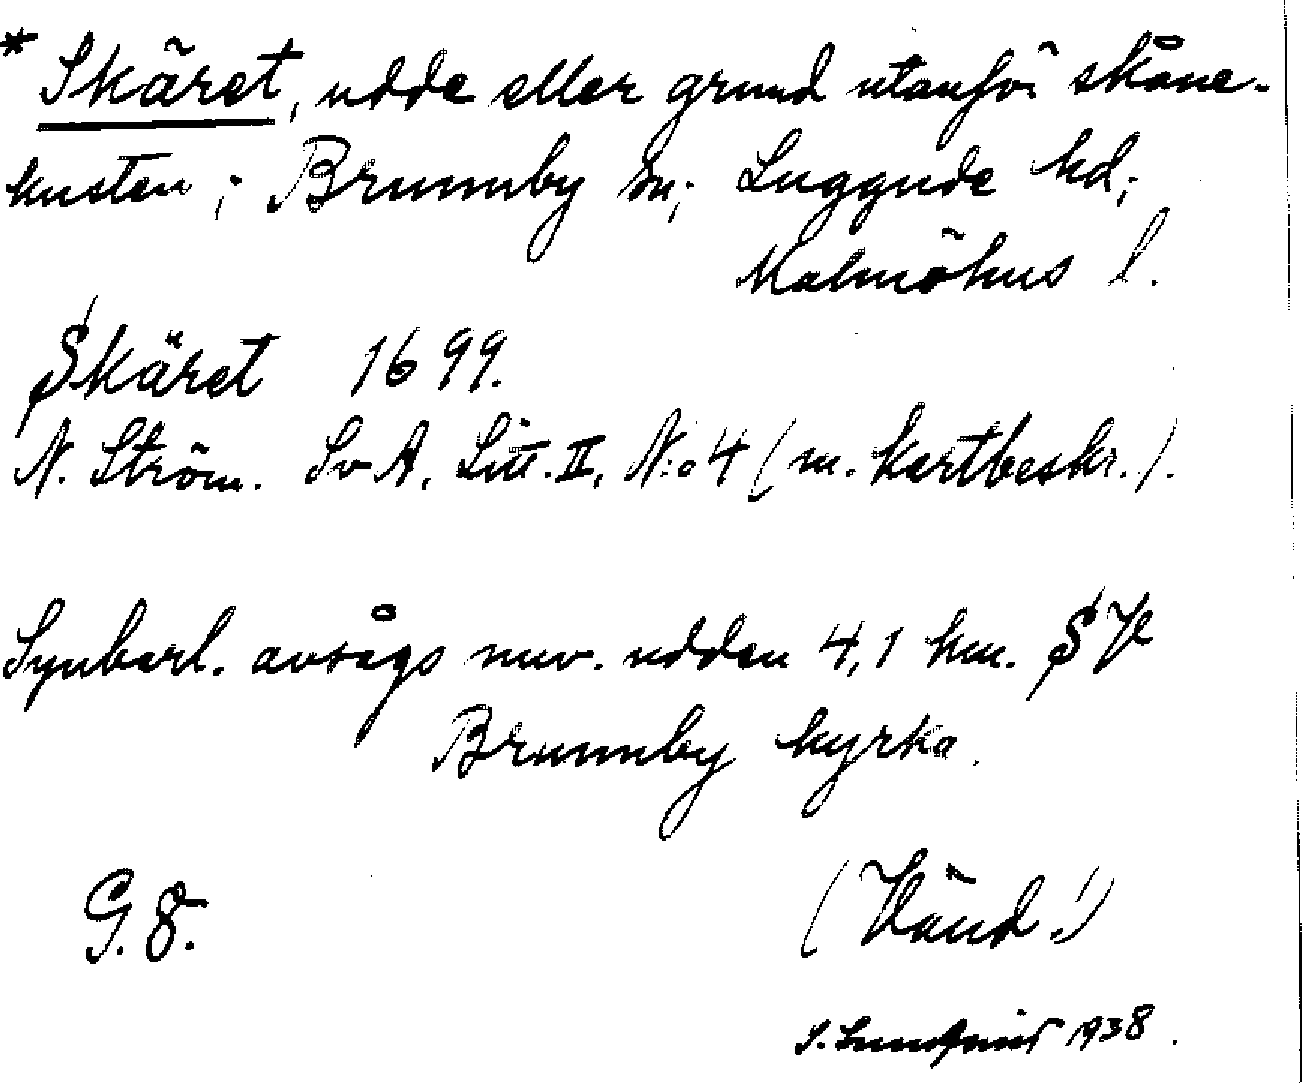 * Skäret, udde eller grund utanför skåne-
kusten; Brunnby sn; Luggude hd;
Malmöhus l.
Skäret 1699.
N. Ström. SvA. Litt. II, N:o 4 (m. kartbeskr.).
Synbarl. avsågs nuv. udden 4,1 km. SV
Brunnby kyrka.
G. 8.
(Vänd!)
S. Lundqvist 1938.